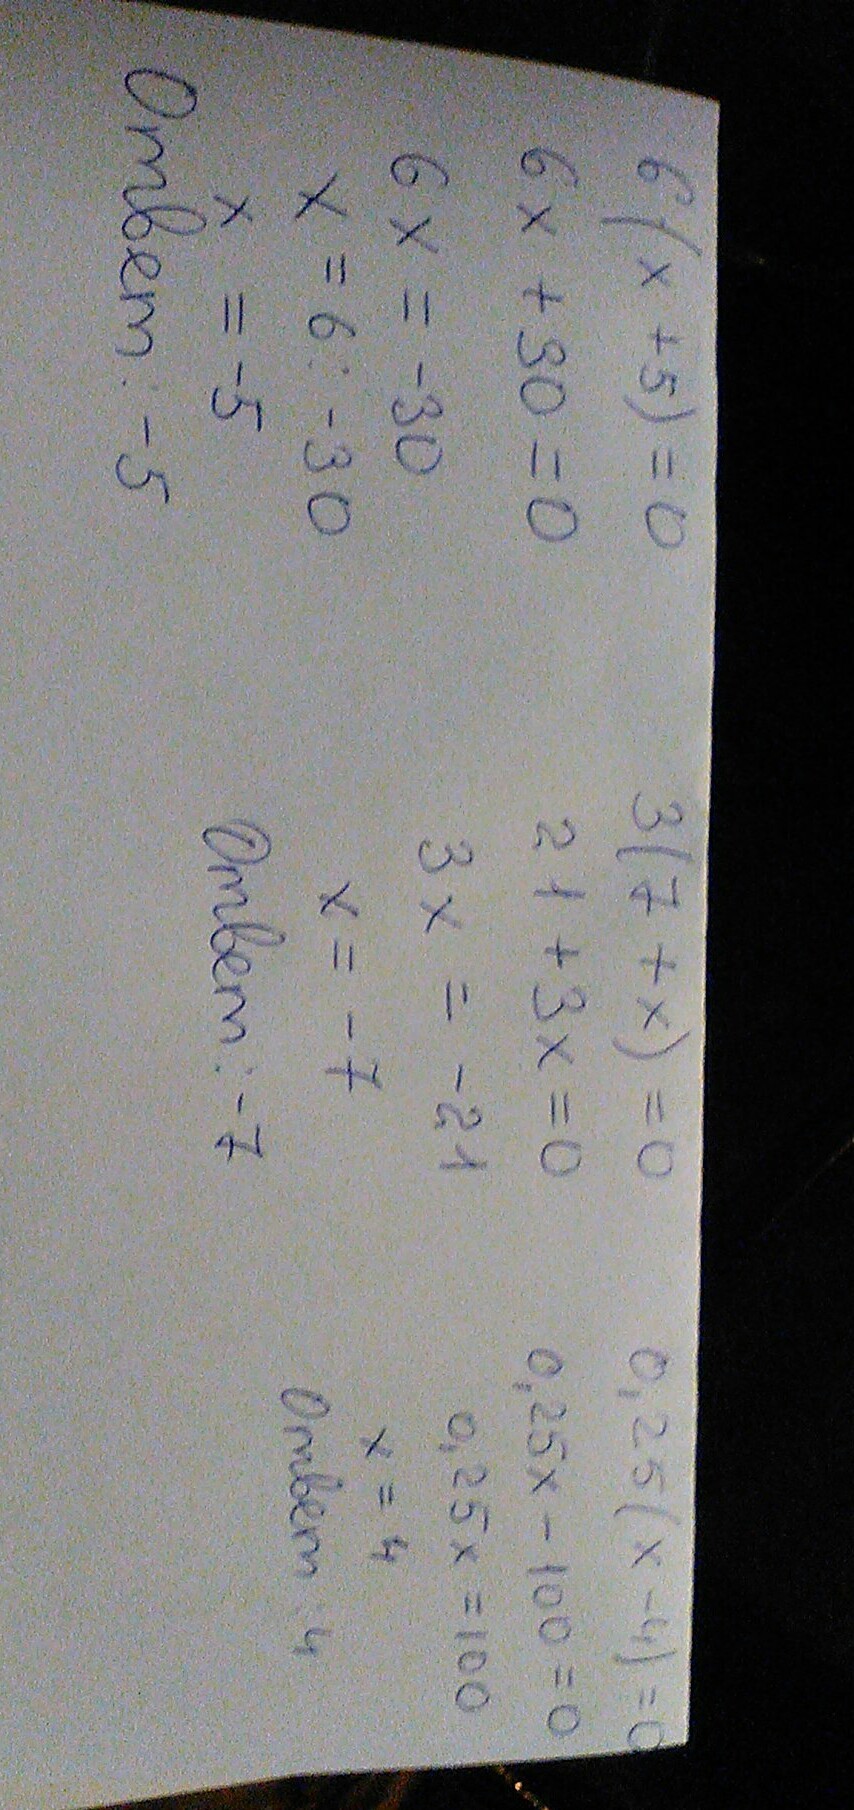 6(x+5)=0
6x+30=0
6x=-30
x=6:-30
x=-5
Ответ:-5
3(7+x)=0
21+3x=0
3x=-21
x=-7
Ответ:-7
0,25(x-4)=0
0,25x-100=0
0,25x=100
x=4
Ответ:4